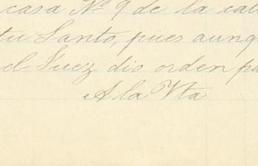 casa Nº 9 de la cal
tu Santo, pues aunq
el Juez dio orden pa
A la Vta